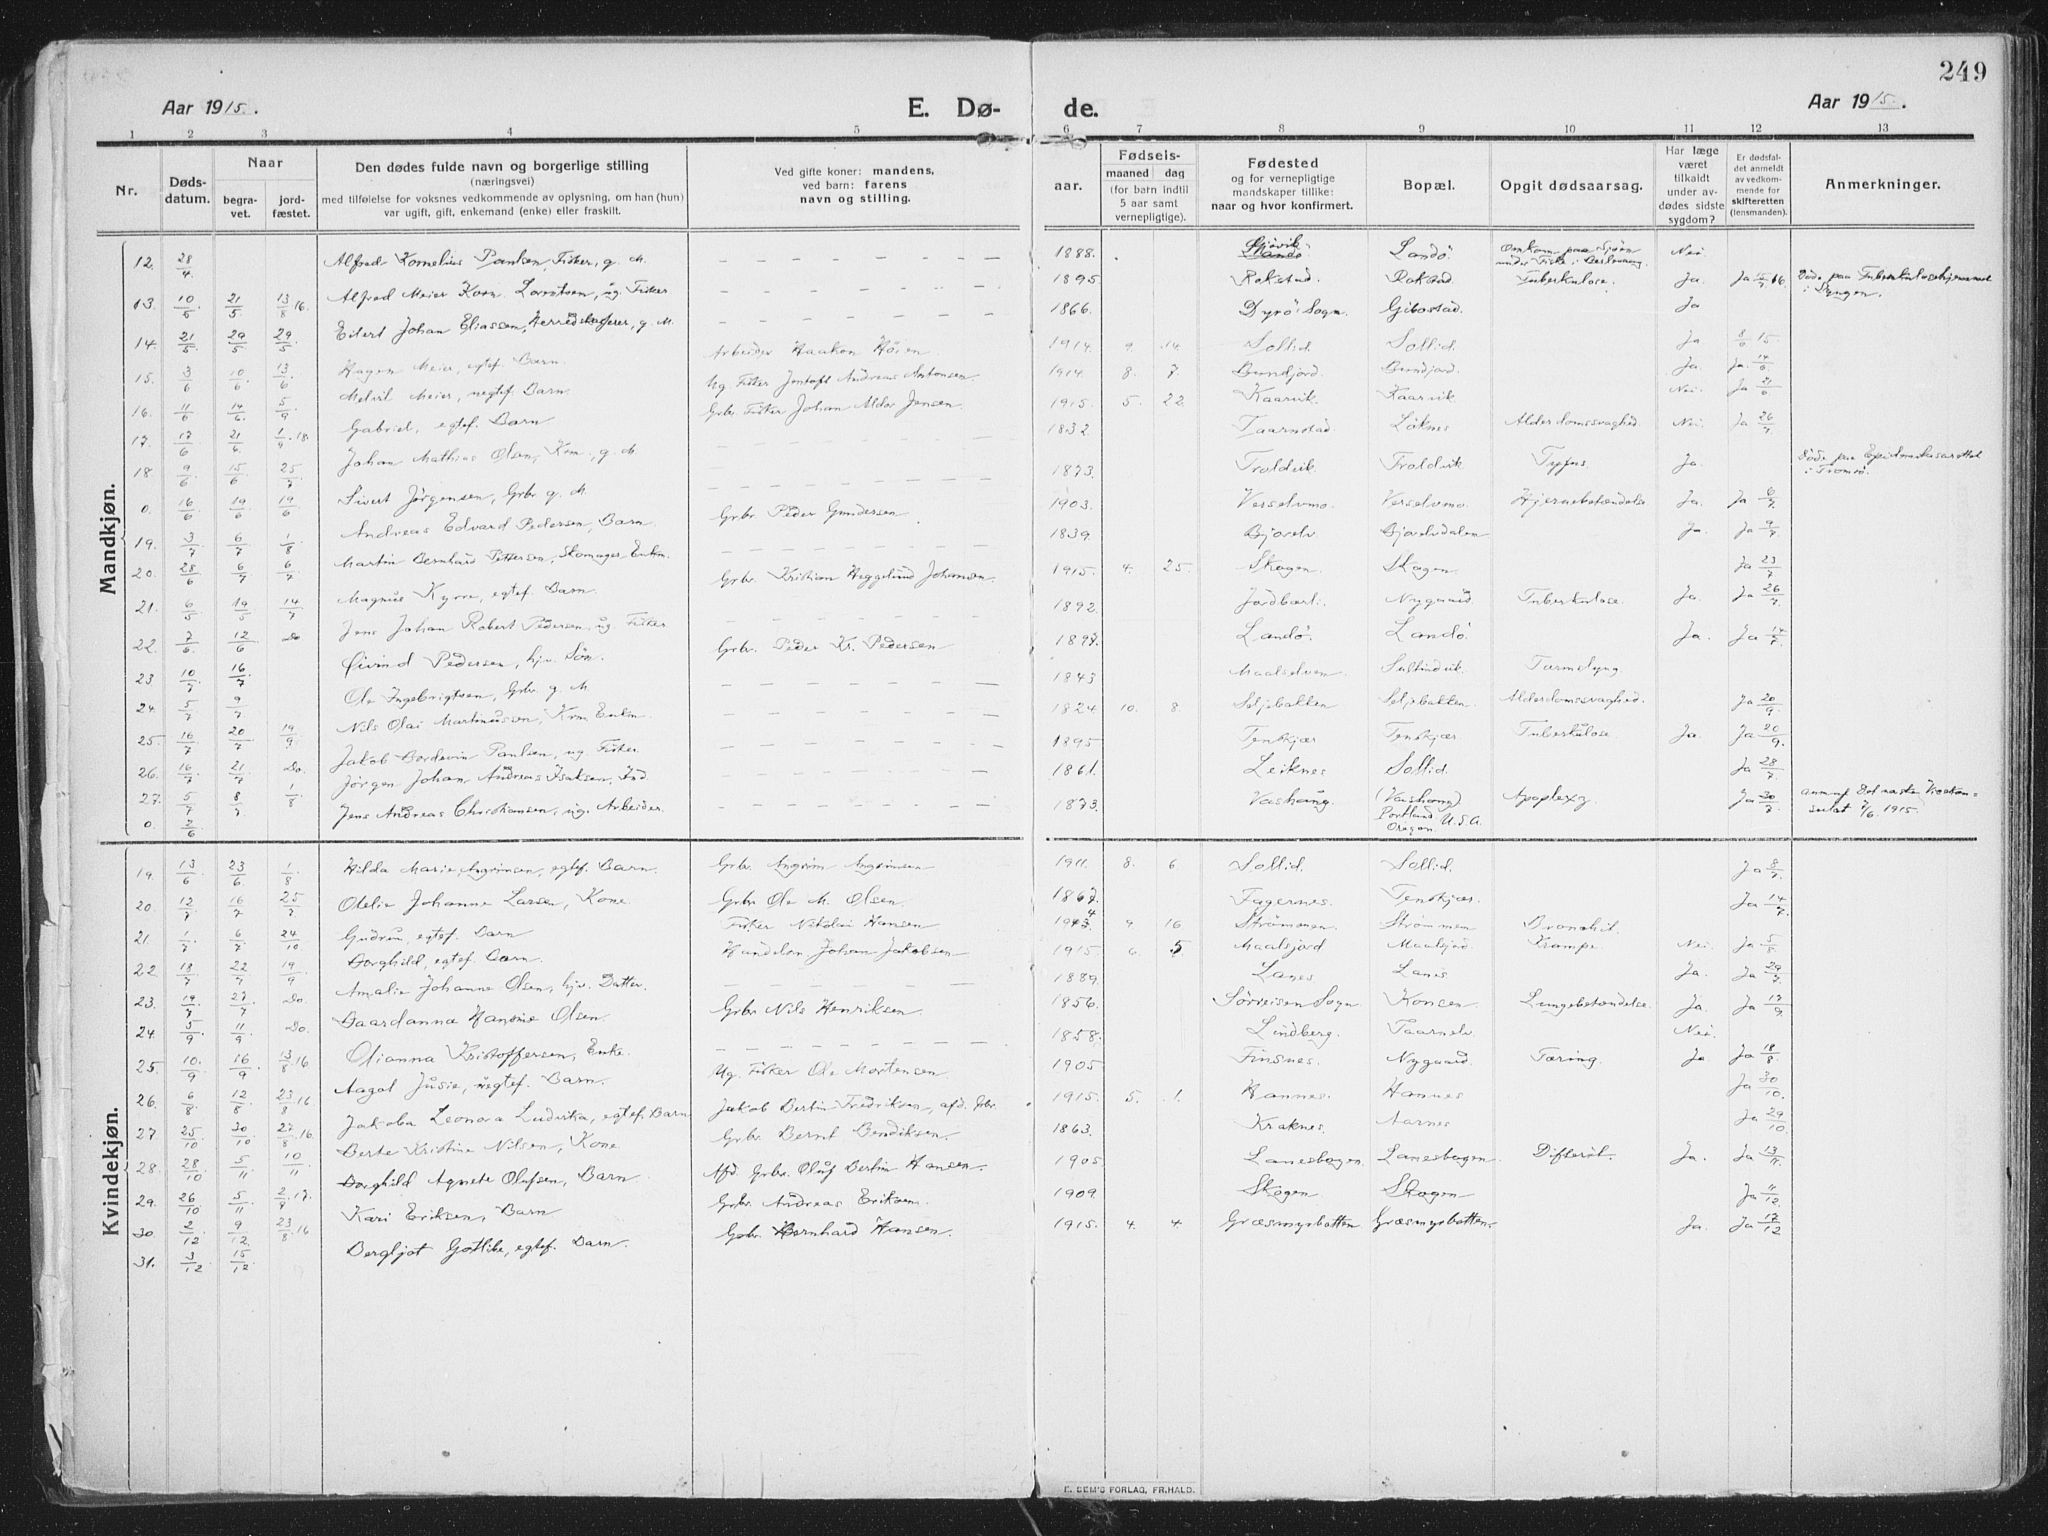 249
Aar 1915.
E. Dø-
de.
Aar 1915.
1 2 3 4 5 6 7 8 9 10 11 12 13
Nr.
Døds-
datum.
Naar
begra-
vet.
jord-
fæstet.
Den dødes fulde navn og borgerlige stilling
(næringsvei)
med tilføielse for voksnes vedkommende av oplysning, om han (hun)
var ugift, gift, enkemand (enke) eller fraskilt.
Ved gifte koner: mandens,
ved barn: farens
navn og stilling.
aar.
Fødsels-
maaned dag
(for barn indtil
5 aar samt
vernepligtige).
Fødested
og for vernepligtige
mandskaper tillike:
naar og hvor konfirmert.
Bopæl.
Opgit dødsaarsag.
Har læge
været
tilkaldt
under av-
dødes sidste
sygdom?
Er dødsfal-
det anmeldt
av vedkom-
mende for
skifteretten
(lensmanden).
Anmerkninger.
Mandkjøn.
12. 28/4 Alfred Kornelius Paulsen, Fisker, g. M. 1888. Landö Nei
13. 10/5 21/5 13/8 16 Alfred Meier Korn. Lorntsen, ug. Fisker 1895 Rokstad. Rokstad. Tuberkulose. Ja. Døde paa Tuberkulosehjemmet i Lyngen.
14. 21/5 29/5 29/5 Eilert Johan Eliassen, Herredskasserer, g. M. 1866. Dyrö Sogn. Gibostad. Ja
15. 3/6 10/6 13/6 Hagen Meier, egtef. Barn Arbeider Haakon Hö 1914 9. 14. Sollid. Sollid. Ja
16. 11/6 14/6 5/9 Melvil Meier, uegtef. Barn. Ug. Fisker Jentoft Andreas Antonsen 1914 8. 7. Bundjord. Bundjord. Ja. Ja. 14/6
17. 17/6 21/6 Gabriel, egtef. Barn Grbr. Fisker Johan Aldor Jensen. 1915. 5. 22. Kaarvik. Kaarvik Nei. Ja 21/6
18. 9/6 15/6 25/7 Johan Mathias Olsen, Krm., g. M. 1832. Taarnstad Löknes Alderdomssvaghed. Nei. Ja 26/7
0. 16/6 19/6 19/6 Sivert Jørgensen, Grbr. g. M. 1873. Troldvik. Troldvik Tyfus. Ja. Døde paa Epidemilasarettet i Tromsø.
19. 3/7 6/7 1/8 Andreas Edvard Pedersen, Barn Grbr. Peder Gundersen 1903. Verselvmo. Verselvmo. Hjernebetændelse Ja. Ja 6/7
20. 28/6 6/7 6/7 Martin Bernhard Pettersen, Skomager, Enkm. 1839. Gjövelv Gjövelvdalen Ja. Ja 9/7
21. 6/5 19/5 14/7 Magnus Kyrre, egtef. Barn. Grbr. Kristian Heggelund Johansen. 1915. 4. 25. Skogen. Skogen. Ja 23/7
22. 7/6 12/6 Do Jens Johan Robert Pedersen, ug. Fisker 1892. Jordbærli. Nygaard. Tuberkulose. Ja. Ja 26/7
23 10/7 16/7 Øivind Pedersen, hjv. Sön. Grbr. Peder Kr. Pedersen Landö. Landö. Ja. Ja 14/7
24. 5/7 9/7 Ole Ingebrigtsen, Grbr. g. M. 1843 Maalselven. Sultindvik. Tarmslyng
25. 16/7 20/7 19/9 Nils Olai Martinussen, Krm. Enkm. 1824 10. 8 Seljebakken Seljebakken Alderdomssvaghed. Ja 20/9
26. 16/7 21/7 Do. Jakob Bordevin Paulsen, ug. Fisker 1895 Tenskjær Tenskjær. Tuberkulose Ja. Ja 20/9.
27. 5/7 8/7 1/8 Jørgen Johan Andreas Isaksen, Ind. 1861. Leiknes Sollid. Ja 28/7
0. 2/6 Jens Andreas Christiansen, ug. Arbeider. 1873. Vashaug. (Vashaug) Portland U.S.A. Oregon. Apoplexy Ja 30/7 anm. af Det norske Vicekon- sulat 7/6 1915.
Kvindekjøn.
19. 13/6 23/6 1/8 Hilda Marie Angrimsen, egtef. Barn. Grbr. Angrim Angrimsen 1911. 8. 6 Sollid. Sollid. Ja 8/7.
20. 12/7 16/7 25/7 Otelie Johanne Larsen, Kone Grbr. Ole M. Olsen. 1867. Fagernes. Tenskjær. Ja 14/7
21. 1/7 6/7 24/10 Gudrun, egtef. Barn Fisker Nikolai Hansen 9 16 Strömmen. Strömmen Bronchit.
22. 18/7 22/7 19/9 Borghild, egtef. Barn. Handelsm Johan Jakobsen 1915 6. 5 Maalsjord Maalsjord. Krampe Nei Ja 5/8
23. 19/7 27/7 Do. Amalie Johanne Olsen, hjv. Datter. 1889 Lanes Lanes Ja. Ja 29/7
24. 5/9 11/9 Do. Baardanna Hansine Olsen. Grbr. Nils Henriksen 1856. Sörreisen Sogn. Konsen Lungebetændelse. Ja. Ja 17/9
25. 10/9 16/9 13/8 16 Olianna Kristoffersen, Enke. 1858. Lindberg. Taarnelv Nei.
26. 6/8 12/8 23/8 16 Aagot Jusie, uegtef. Barn. Ug. Fisker Ole Mortensen 1905 Finsnes. Nygaard Tæring. Ja Ja 18/8
27 25/10 30/10 27/8 16 Jakoba Leonora Ludvika, egtef. Barn Jakob Bertin Fredriksen, afd. Grbr. 1915. 5. 1. Hannes. Hannes Ja 30/10.
28. 28/10 5/11 10/11 Berte Kristine Nilsen, Kone Grbr. Bernt Bendiksen. 1863. Kraknes. Aarnes Ja 29/10
29. 26/10 5/11 17. Borghild Agnete Olufsen, Barn. Afd. Grbr. Oluf Bertin Hansen. 1905 Lanesbogen. Lanesbogen Difterit. Ja. Ja 13/11
30. 2/12 9/12. 23/8 16 Kari Eriksen, Barn Grbr. Andreas Eriksen. 1909. Skogen Skogen Ja 4/12
31. 3/12 15/12 Bergljot Gotlibe, egtef. Barn. Grbr. Bernhard Hansen. 1915. 4. 4 Græsmyrbotten. Græsmyrbotten. Ja. Ja 17/12
E. SEM'S FORLAG, FR.HALD.